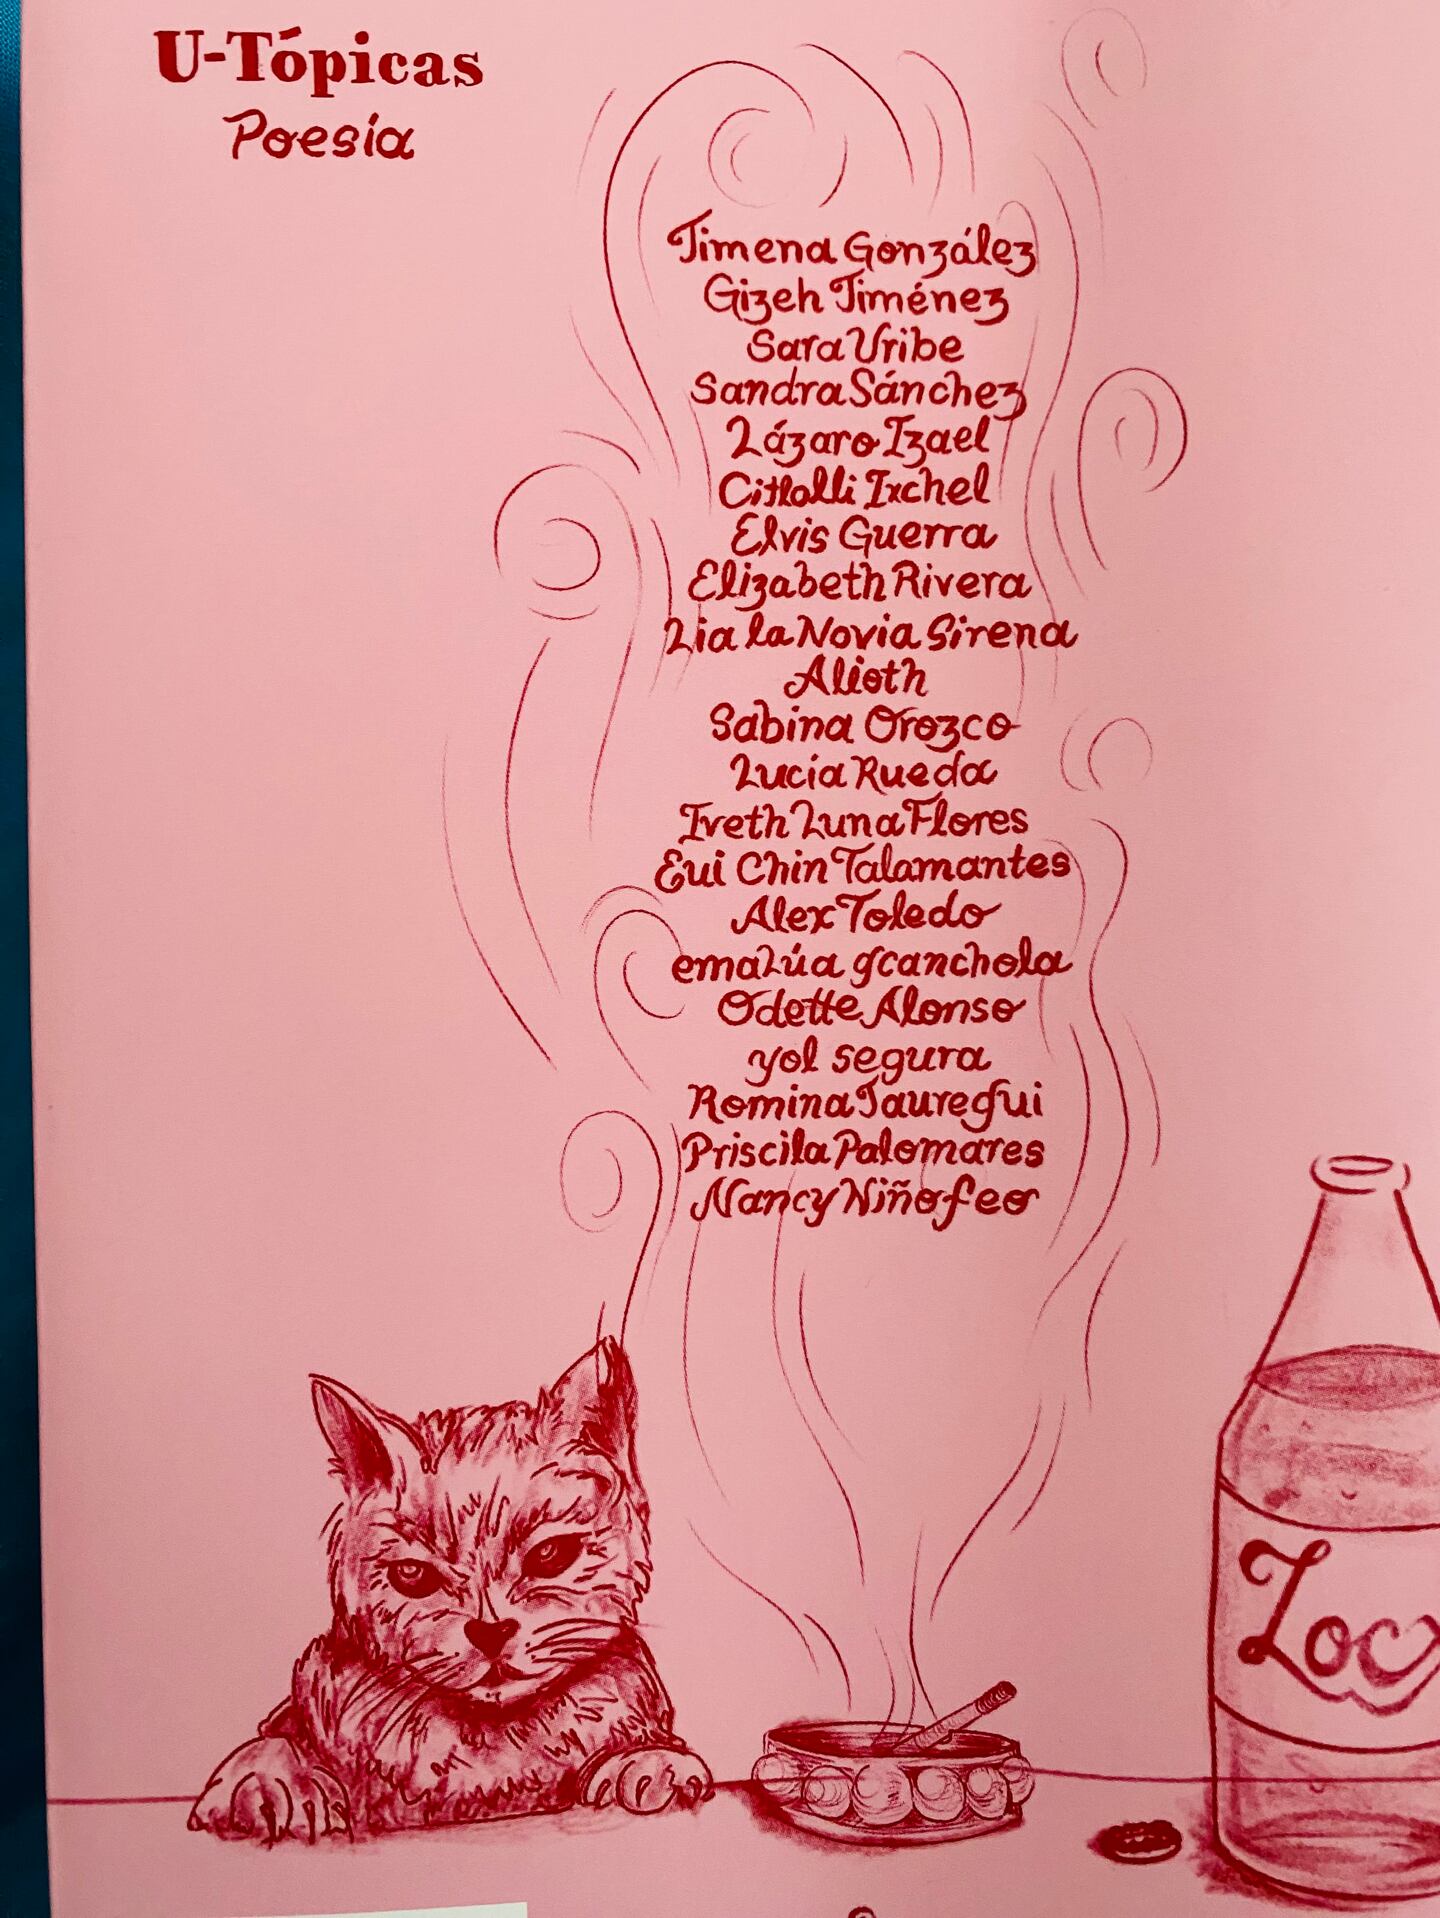 U-Tópicas
Poesía
Jimena González
Gizeh Jiménez
Sara Uribe
Sandra Sánchez
Lázaro Izael
Citlalli Ixchel
Elvis Guerra
Elizabeth Rivera
Lia la Novia Sirena
Alioth
Sabina Orozco
Lucía Rueda
Iveth Luna Flores
Eui Chin Talamantes
Alex Toledo
emaLúa gcanchola
Odette Alonso
yol segura
Romina Jauregui
Priscila Palomares
Nancy Niñofeo